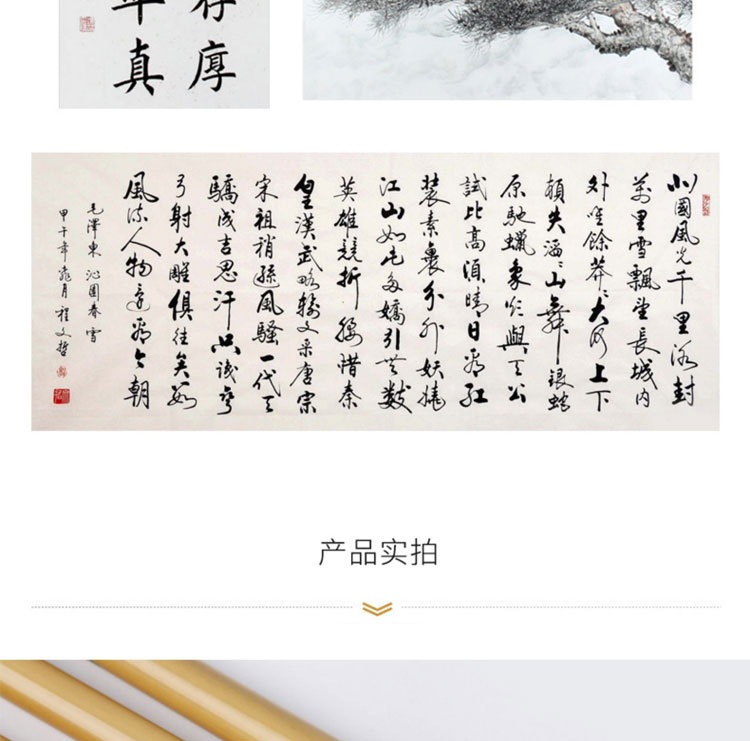 厚
真
北國風光千里冰封
萬里雪飄望長城内
外唯餘莽〻大河上下
頓失滔〻山舞銀蛇
原馳蠟象欲與天公
試比高須晴日看紅
裝素裹分外妖嬈
江山如此多嬌引無數
英雄競折腰惜秦
皇漢武略輸文采唐宗
宋祖稍遜風騷一代天
驕成吉思汗只識彎
弓射大雕俱往矣數
風流人物還看今朝
毛澤東 沁園春 雪
甲午年 月 程文哲
产品实拍